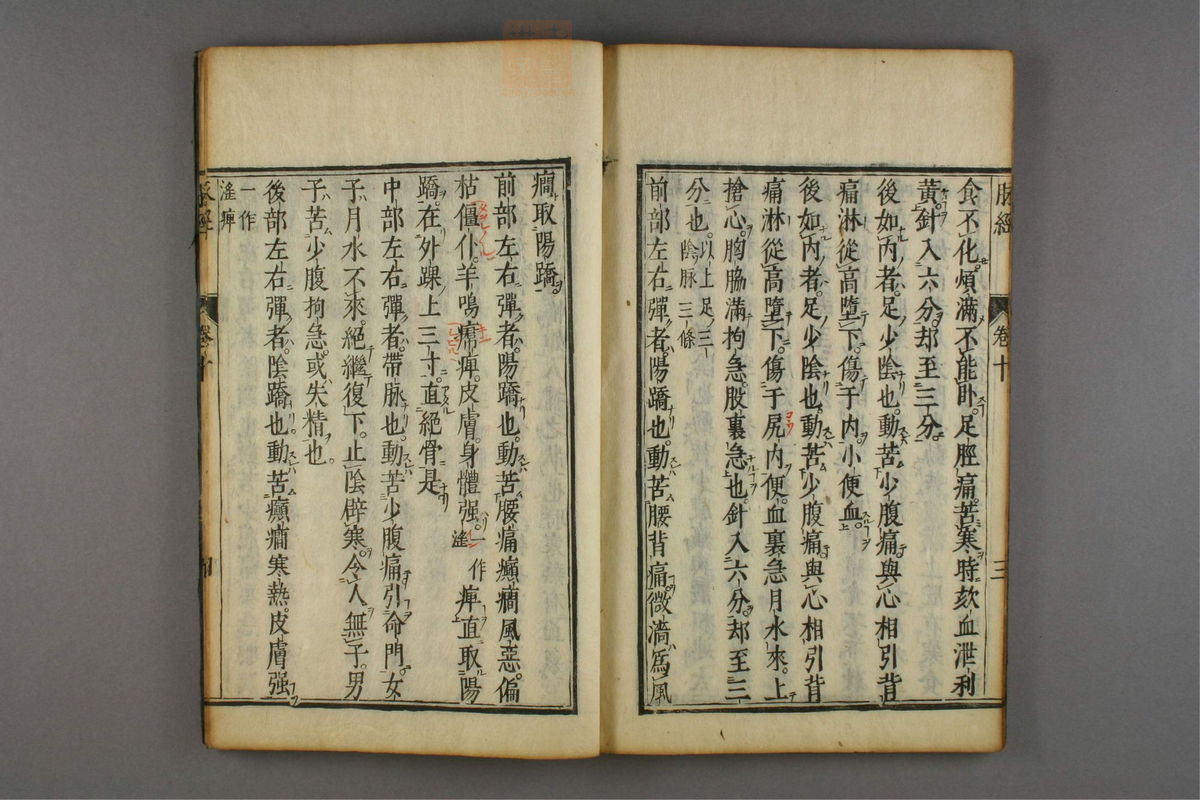 脉經 卷十 三
食不化煩滿不能臥足脛痛苦寒時欬血泄利
黃針入六分却至三分
後如內者足少陰也動苦少腹痛與心相引背
痛淋從高墮下傷于內小便血
後如內者足少陰也動苦少腹痛與心相引背
痛淋從高墮下傷于尻內便血裏急月水來上
搶心胸脇滿拘急股裏急也針入六分却至三
分也以上足三陰脉三條
前部左右彈者陽蹻也動苦腰背痛微濇為風
癎取陽蹻
前部左右彈者陽蹻也動苦腰痛癲癎風惡偏
枯僵仆羊鳴㾽痺皮膚身體强一作淫痺直取陽
蹻在外踝上三寸直絕骨是
中部左右彈者帶脉也動苦少腹痛引命門女
子月水不來絕繼復下止陰辟寒令人無子男
子苦少腹拘急或失精也
後部左右彈者陰蹻也動苦癲癎寒熱皮膚强
一作淫痺